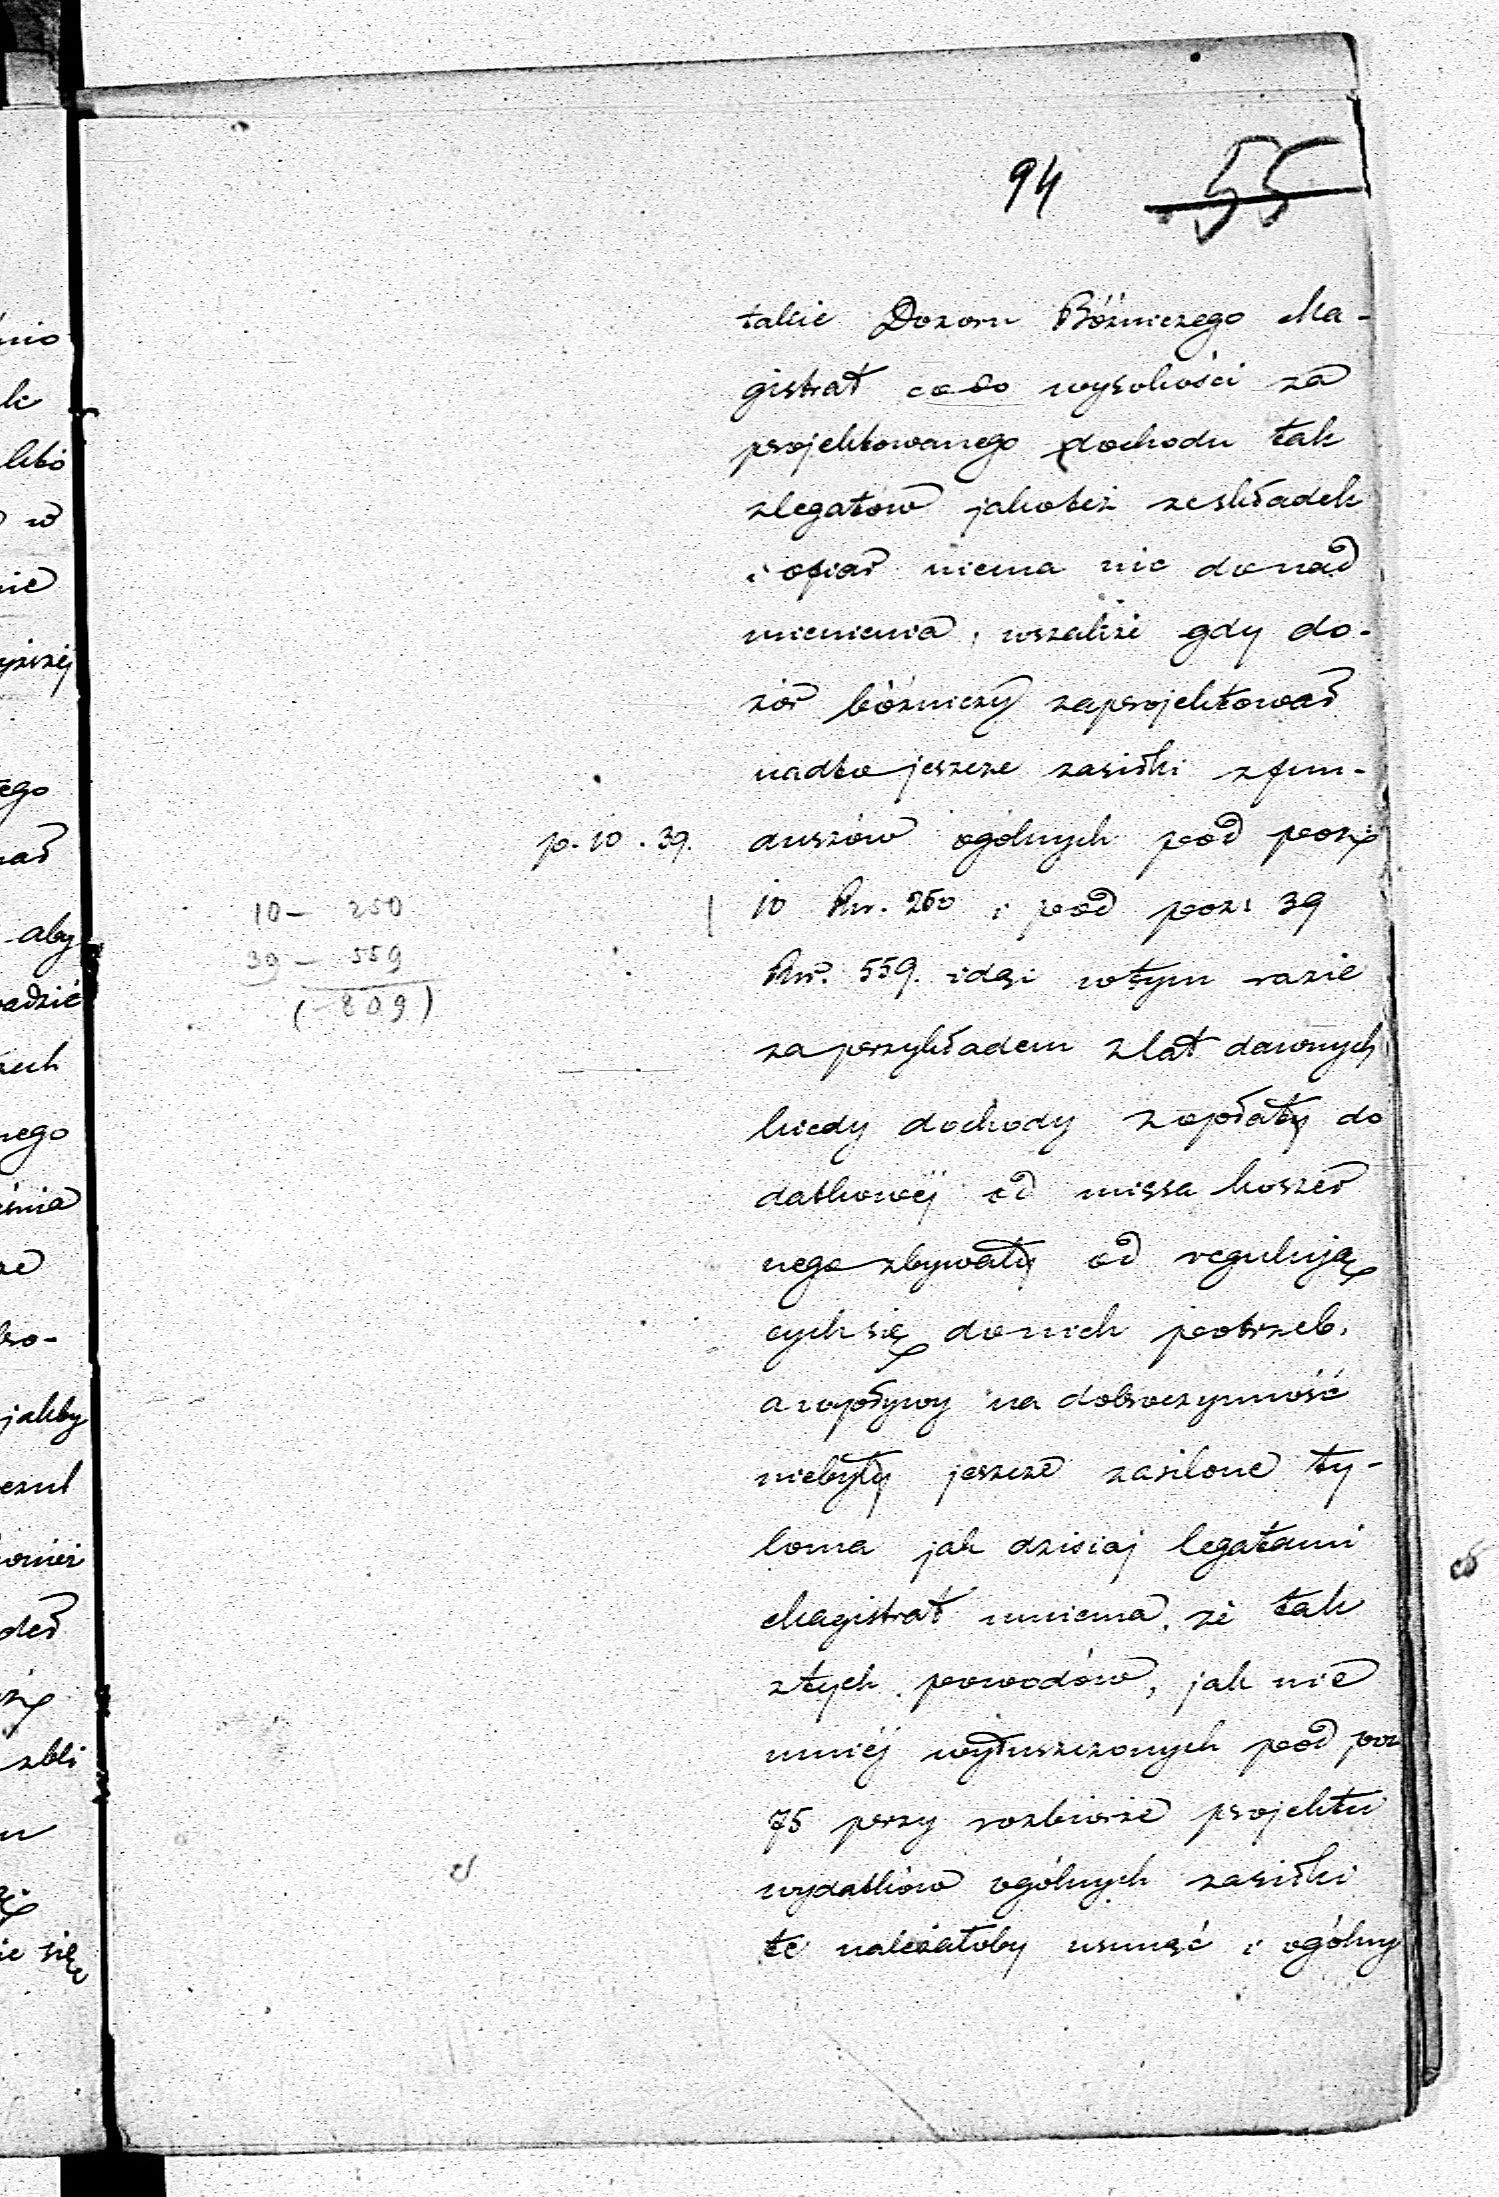 94 55
takie Dozoru Bóżniczego Ma-
gistrat co do wysokości za
projektowanego dochodu tak
zlegatów jakoteż ze składek
i ofiar niema nic do nad
mienienia, wszakże gdy do-
zór bóżniczy zaprojektował
nadto jeszcze zasiłki z fun-
p. 10. 39. duszów ogólnych pod poz.
10 Rsr. 250 i pod poz: 39
10 - 250
39 - 559
(809)
Rsr. 559. idąc wtym razie
za przykładem z lat dawnych
kiedy dochody z opłaty do
datkowej od mięsa koszer
nego zbywały od regulują
cych się do nich potrzeb,
a wpływy na dobroczynność
niebyły jeszcze zasilone ty-
loma jak dzisiaj legatami
Magistrat mniema, że tak
z tych powodów, jak nie
mniéj wyłuszczonych pod poz
75 przy rozbiorze projektu
wydatków ogólnych zasiłki
te należałoby usunąć i ogólny
nio
k
w
nie
ego
aby
nego
jakby
się